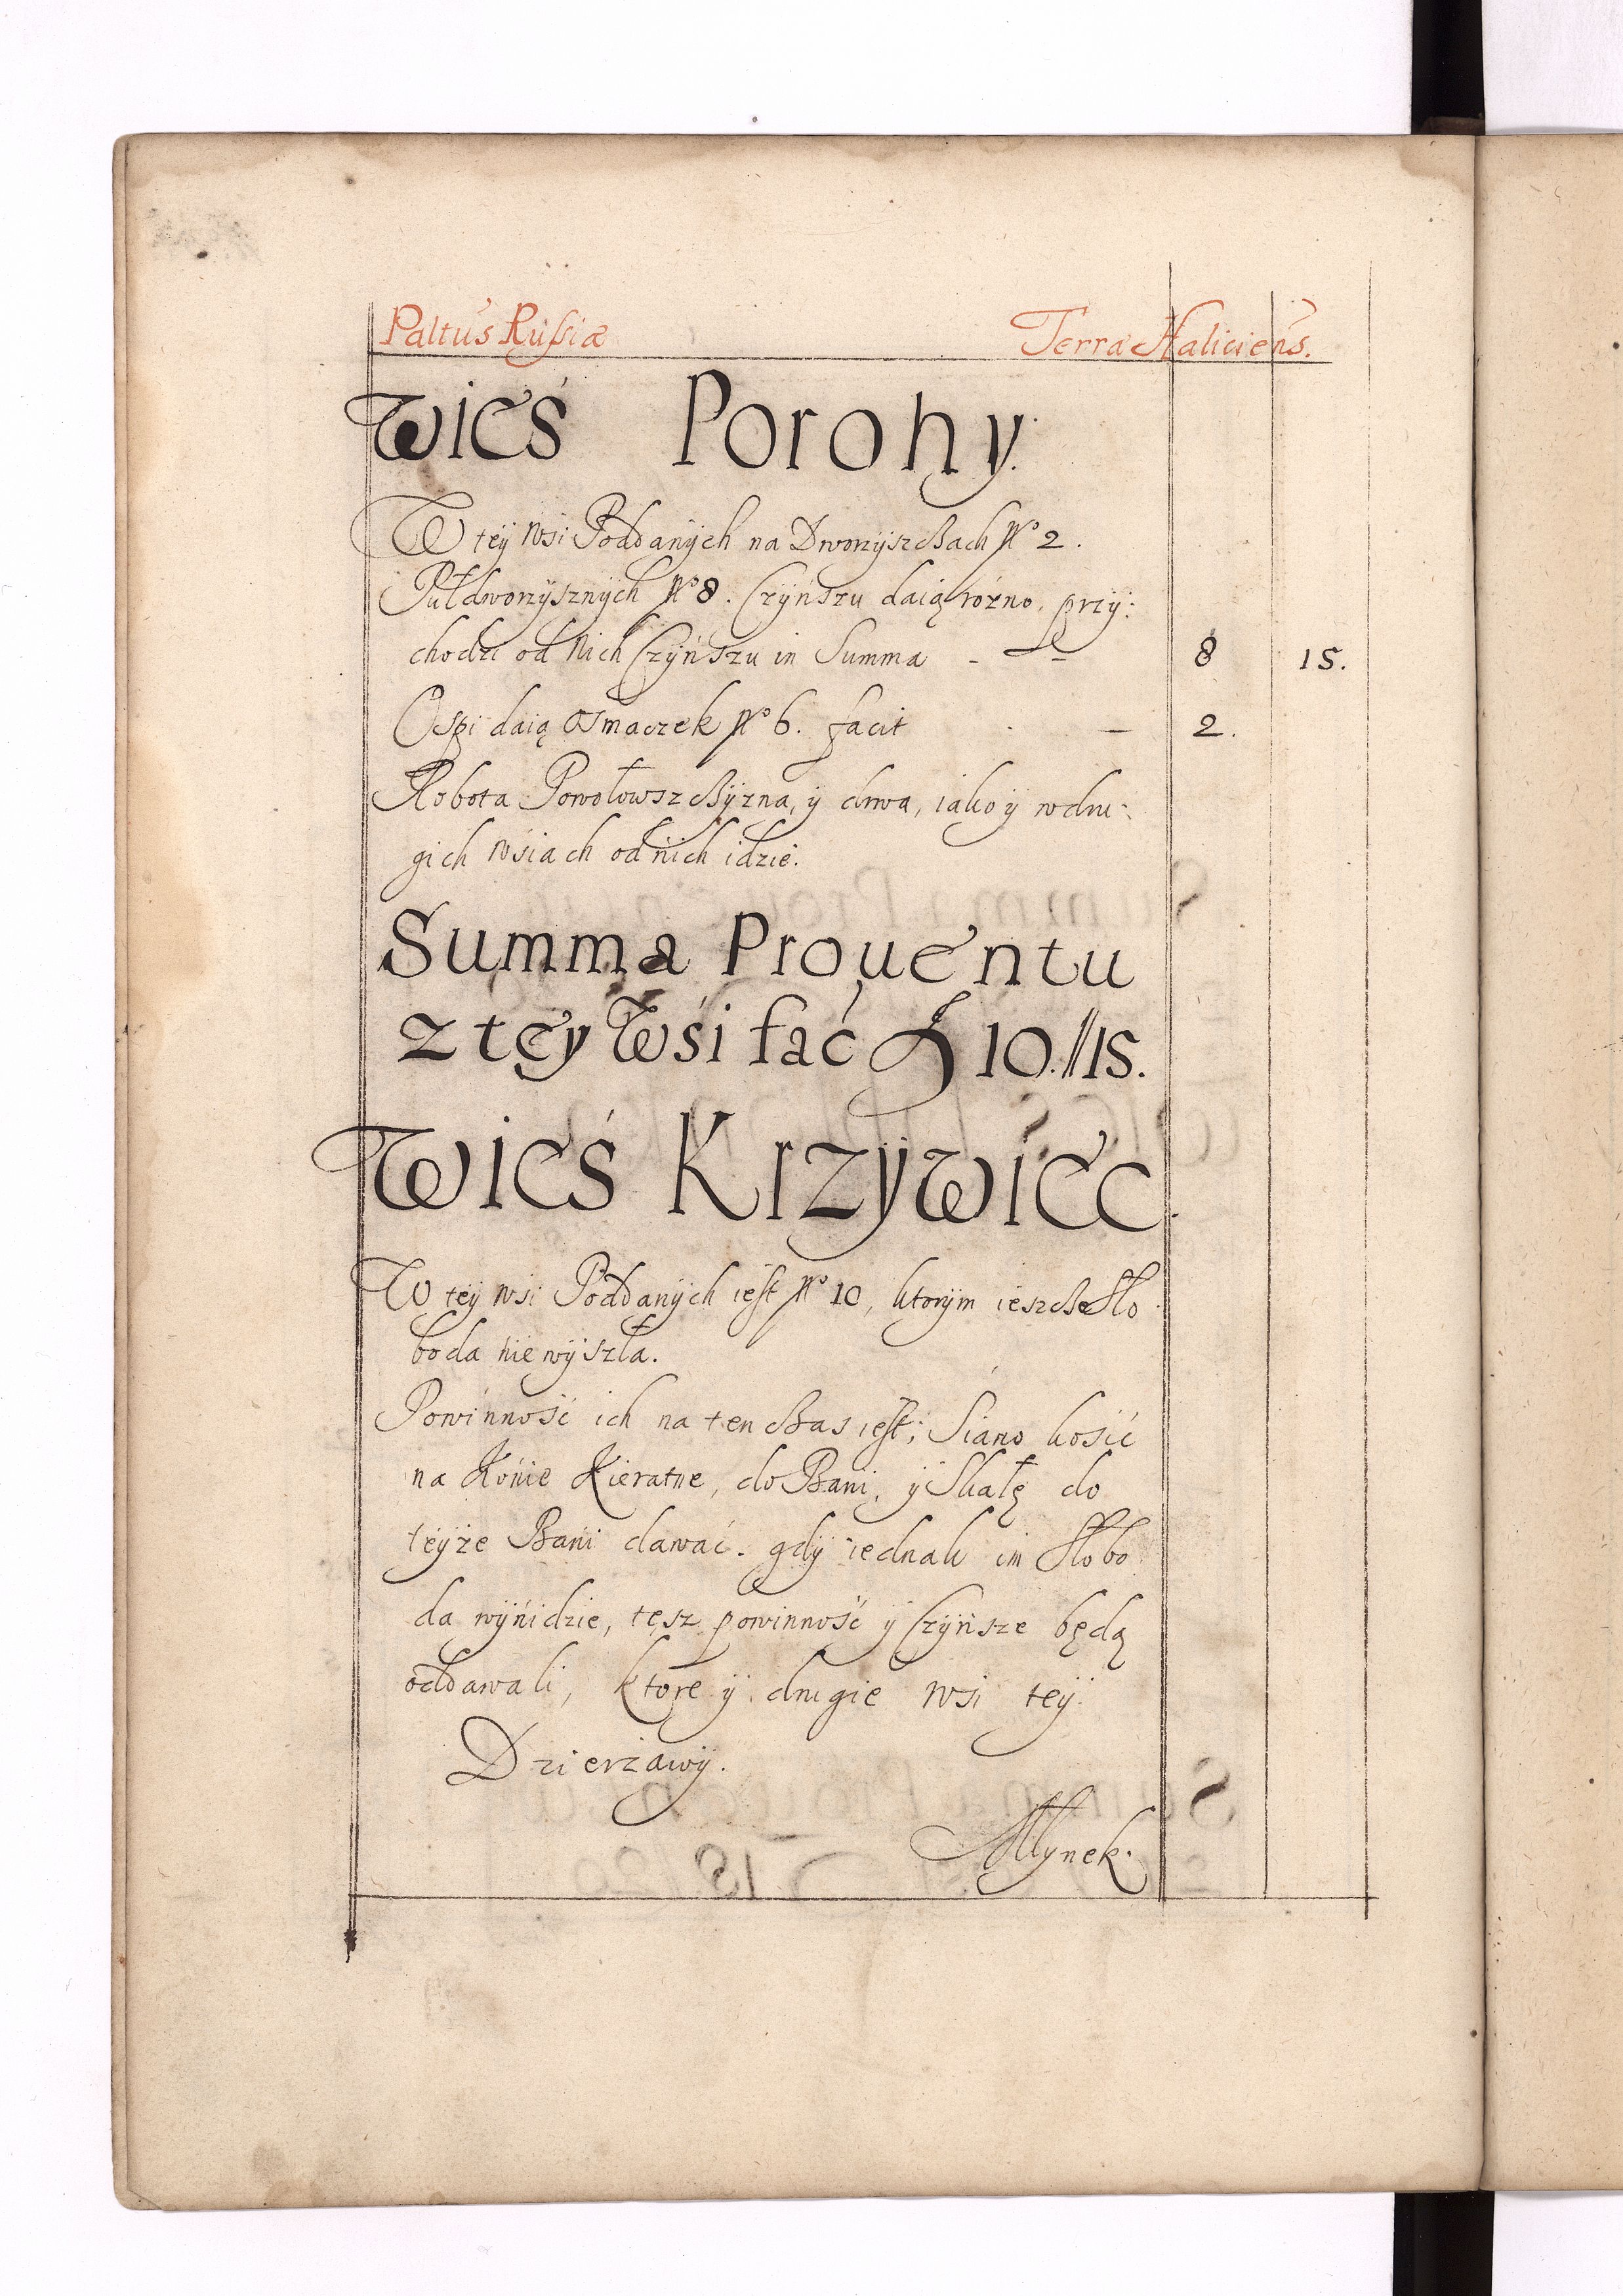 Paltus Russiæ Terra Haliciens.
Wieś Porohy.
W tey wsi Poddanych na Dworzyszczach No 2.
Pułdworzysznych No 8. Czynszu daią rózno, przy:
chodzi od nich Czynszu in Summa - 8 15.
Ospi daią Osmaczek No 6. facit - 2.
Robota Powołowszczyzna, y drwa, iako y w dru:
gich wsiach od nich idzie.
Summa Prouentu
z tey Wśi fać 10.//15.
Wieś Krzywiec.
W tey wsi Poddanych iest No 10, ktorym ieszcze Sło
boda nie wyszła.
Powinność ich na ten czas iest; Siano kosić
na Konie Kieratne, do Bani, y Skałę do
teyże Bani dawać. gdy iednak im Słobo
da wynidzie, tesz powinność y Czynsze będą
oddawali, ktore y drugie wsi tey
Dzierzawy.
Młynek.